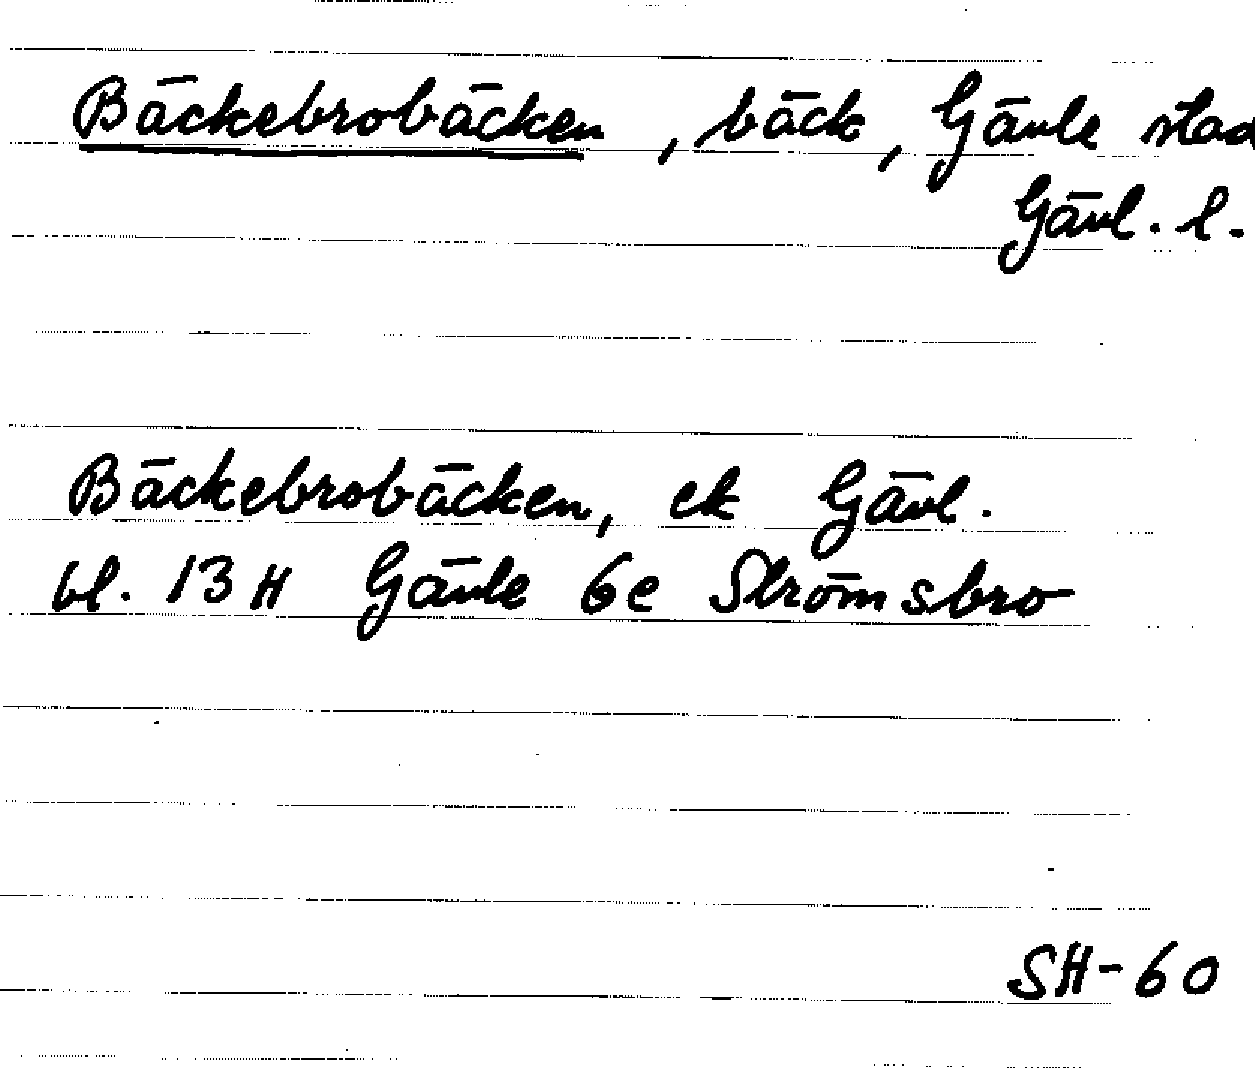 Bäckebrobäcken, bäck, Gävle stad
Gävl. l.
Bäckebrobäcken, ek Gävl.
bl. 13 H Gävle 6e Strömsbro
SH-60